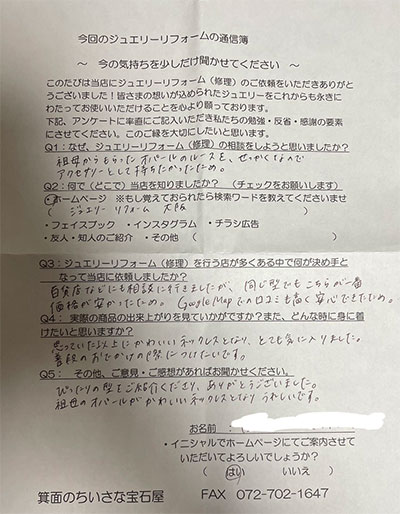 今回のジュエリーリフォームの通信簿
～ 今の気持ちを少しだけ聞かせてください ～
このたびは当店にジュエリーリフォーム（修理）のご依頼をいただきありがと
うございました！皆さまの想いが込められたジュエリーをこれからも永きに
わたってお使いいただけることを心より願っております。
下記、アンケートに率直にご記入いただき私たちの勉強・反省・感謝の要素
にさせてください。このご縁を大切にしたいと思います。
Q1：なぜ、ジュエリーリフォーム（修理）の相談をしようと思いましたか？
祖母からもらったオパールのルースを、せっかくなので
アクセサリーとして持ちたかったため。
Q2：何で（どこで）当店を知りましたか？ （チェックをお願いします）
・ホームページ ※もし覚えておられたら検索ワードを教えてくださいませ
（ ジュエリーリフォーム 大阪 ）
・フェイスブック ・インスタグラム ・チラシ広告
・友人・知人のご紹介 ・その他（ ）
Q3：ジュエリーリフォーム（修理）を行う店が多くある中で何が決め手と
なって当店に依頼しましたか？
百貨店などにも相談に行きましたが、同じ型でもこちらが一番
価格が安かったため。GoogleMapでの口コミも高く安心できたため。
Q4： 実際の商品の出来上がりを見ていかがですか？また、どんな時に身に着
けたいと思いますか？
思っていた以上にかわいいネックレスとなり、とても気に入りました。
普段のおでかけの際につけたいです。
Q5： その他、ご意見・ご感想があればお聞かせください。
ぴったりの型をご紹介くださり、ありがとうございました。
祖母のオパールがかわいいネックレスとなり うれしいです。
お名前：
・イニシャルでホームページにてご案内させて
いただいてよろしいでしょうか？
（ はい いいえ ）
箕面のちいさな宝石屋 FAX 072-702-1647